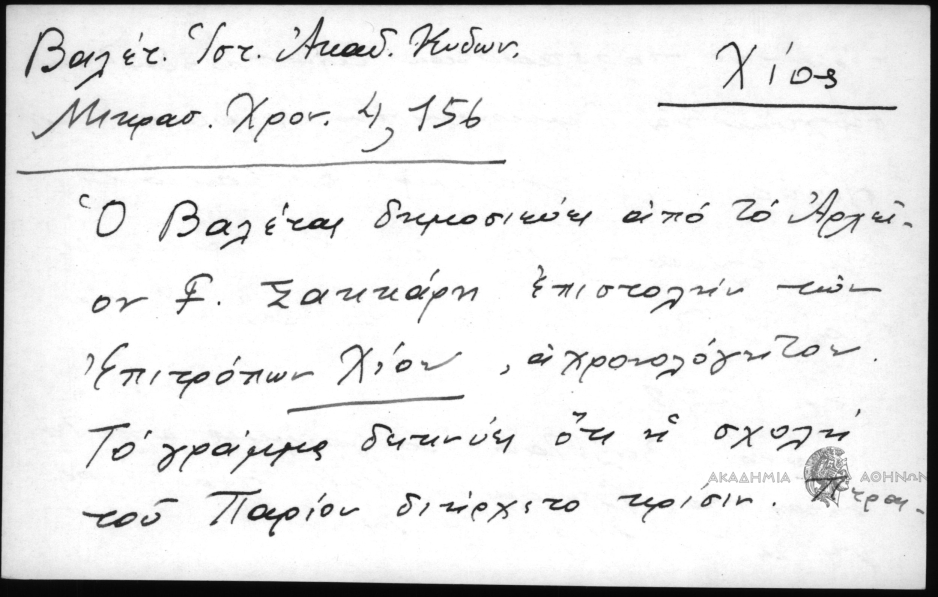 Βαλέτ. Ἱστ. Ἀκαδ. Κυδων.
Μικρασ. Χρον. 4, 156
Χίος
Ὁ Βαλέτας δημοσιεύει ἀπό τό Ἀρχεῖ-
ον Γ. Σακκάρη ἐπιστολήν τῶν
Ἐπιτρόπων Χίου, ἀχρονολόγητον.
Τό γράμμα δεικνύει ὅτι ἡ σχολή
τοῦ Παρίου διήρχετο κρίσιν.
ΑΚΑΔΗΜΙΑ ΑΘΗΝΩΝ